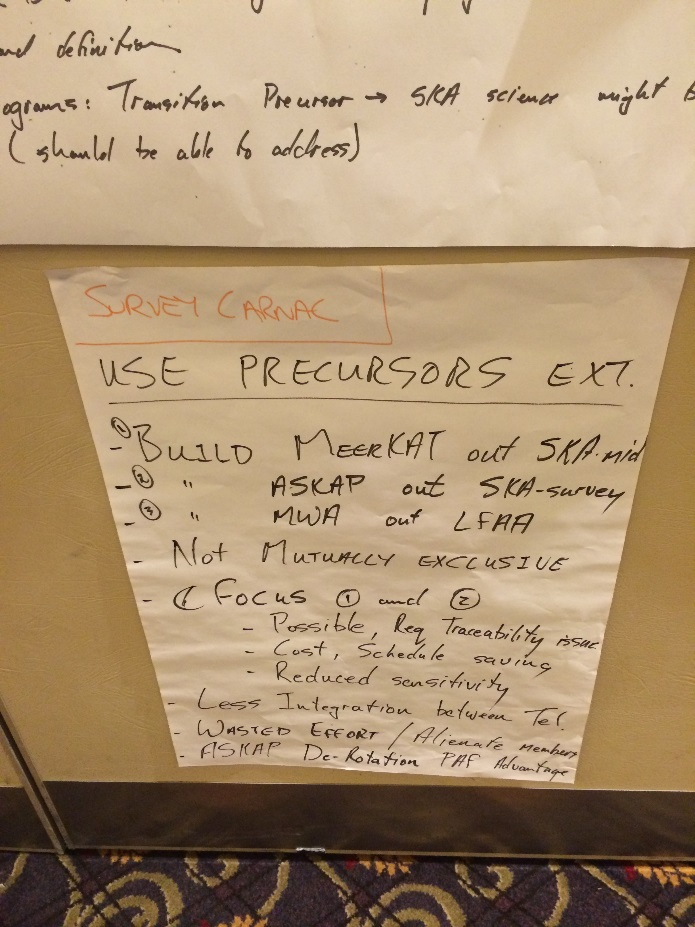 and definition
ograms: Transition Precursor → SKA science might
(should be able to address)
SURVEY CARNAC
USE PRECURSORS EXT.
- ① BUILD MEERKAT out SKA-mid
- ② " ASKAP out SKA-survey
- ③ " MWA out LFAA
- Not MUTUALLY EXCLUSIVE
- Focus ① and ②
- Possible, Req Traceability issue
- Cost, Schedule saving
- Reduced sensitivity
- Less Integration between Tel.
- WASTED EFFORT / Alienate Members
- ASKAP De-Rotation PAF Advantage